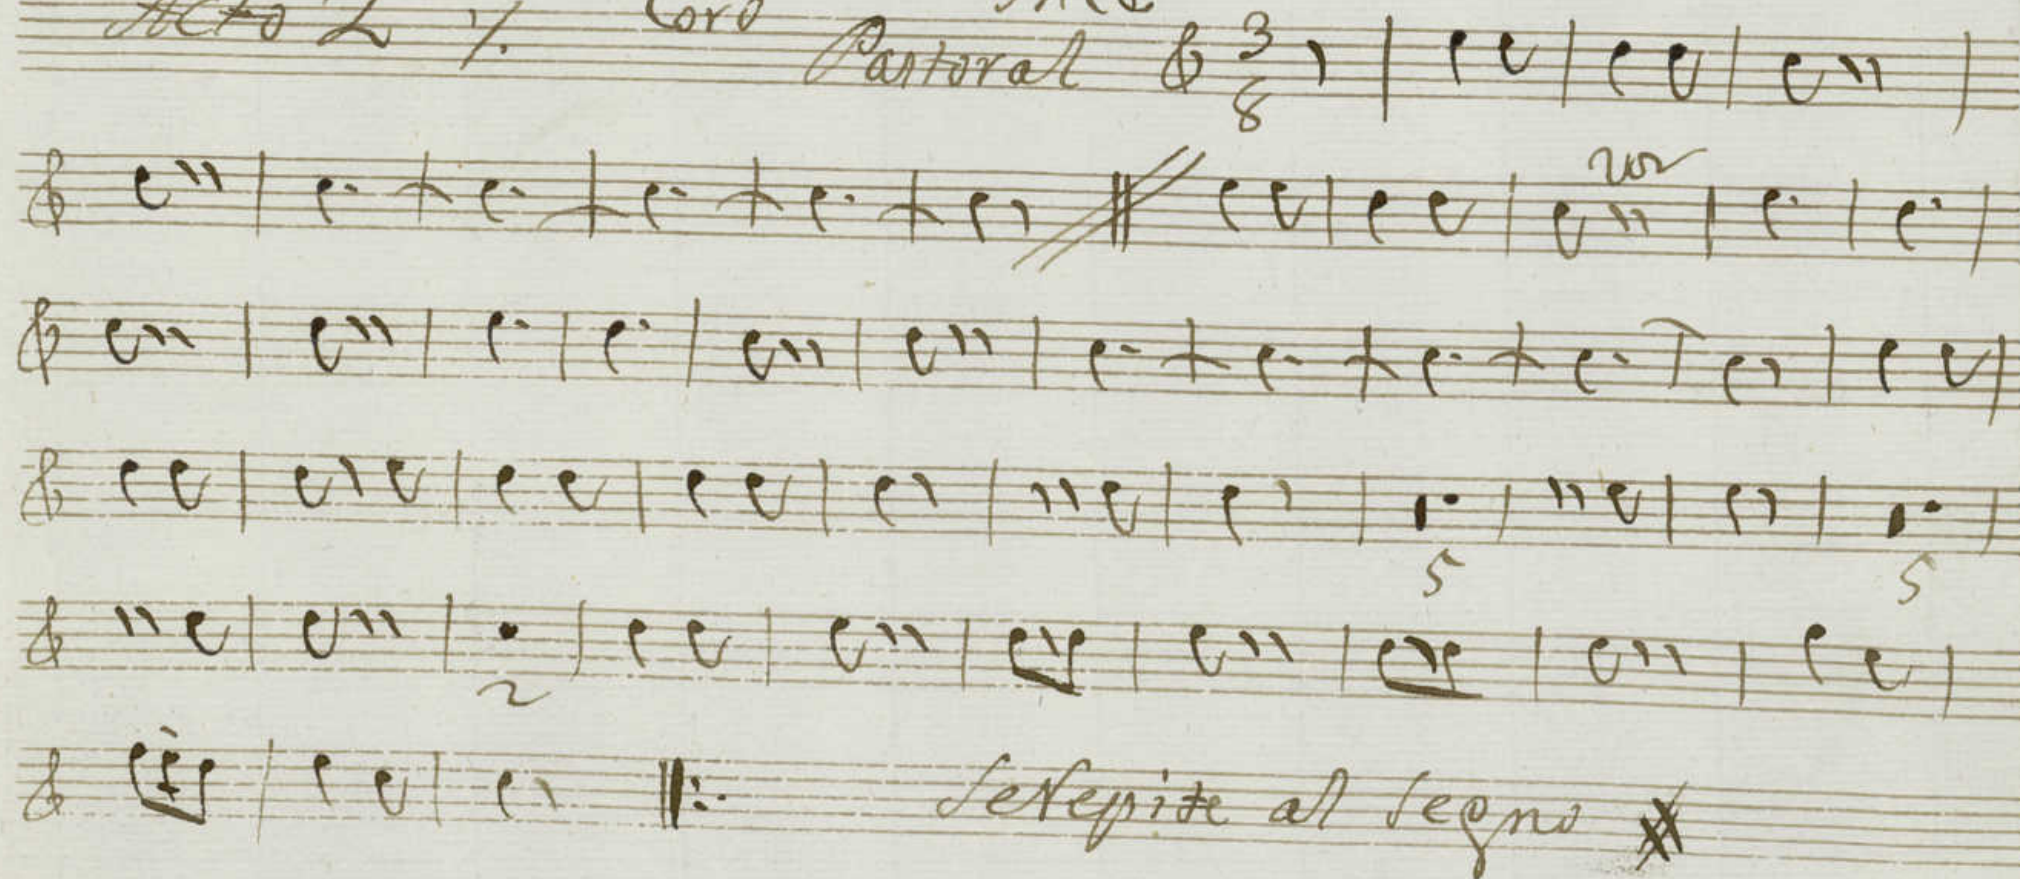 Acto 2 Coro
Pastoral 3
8
voz
5 5
2
Se Repite al Segno